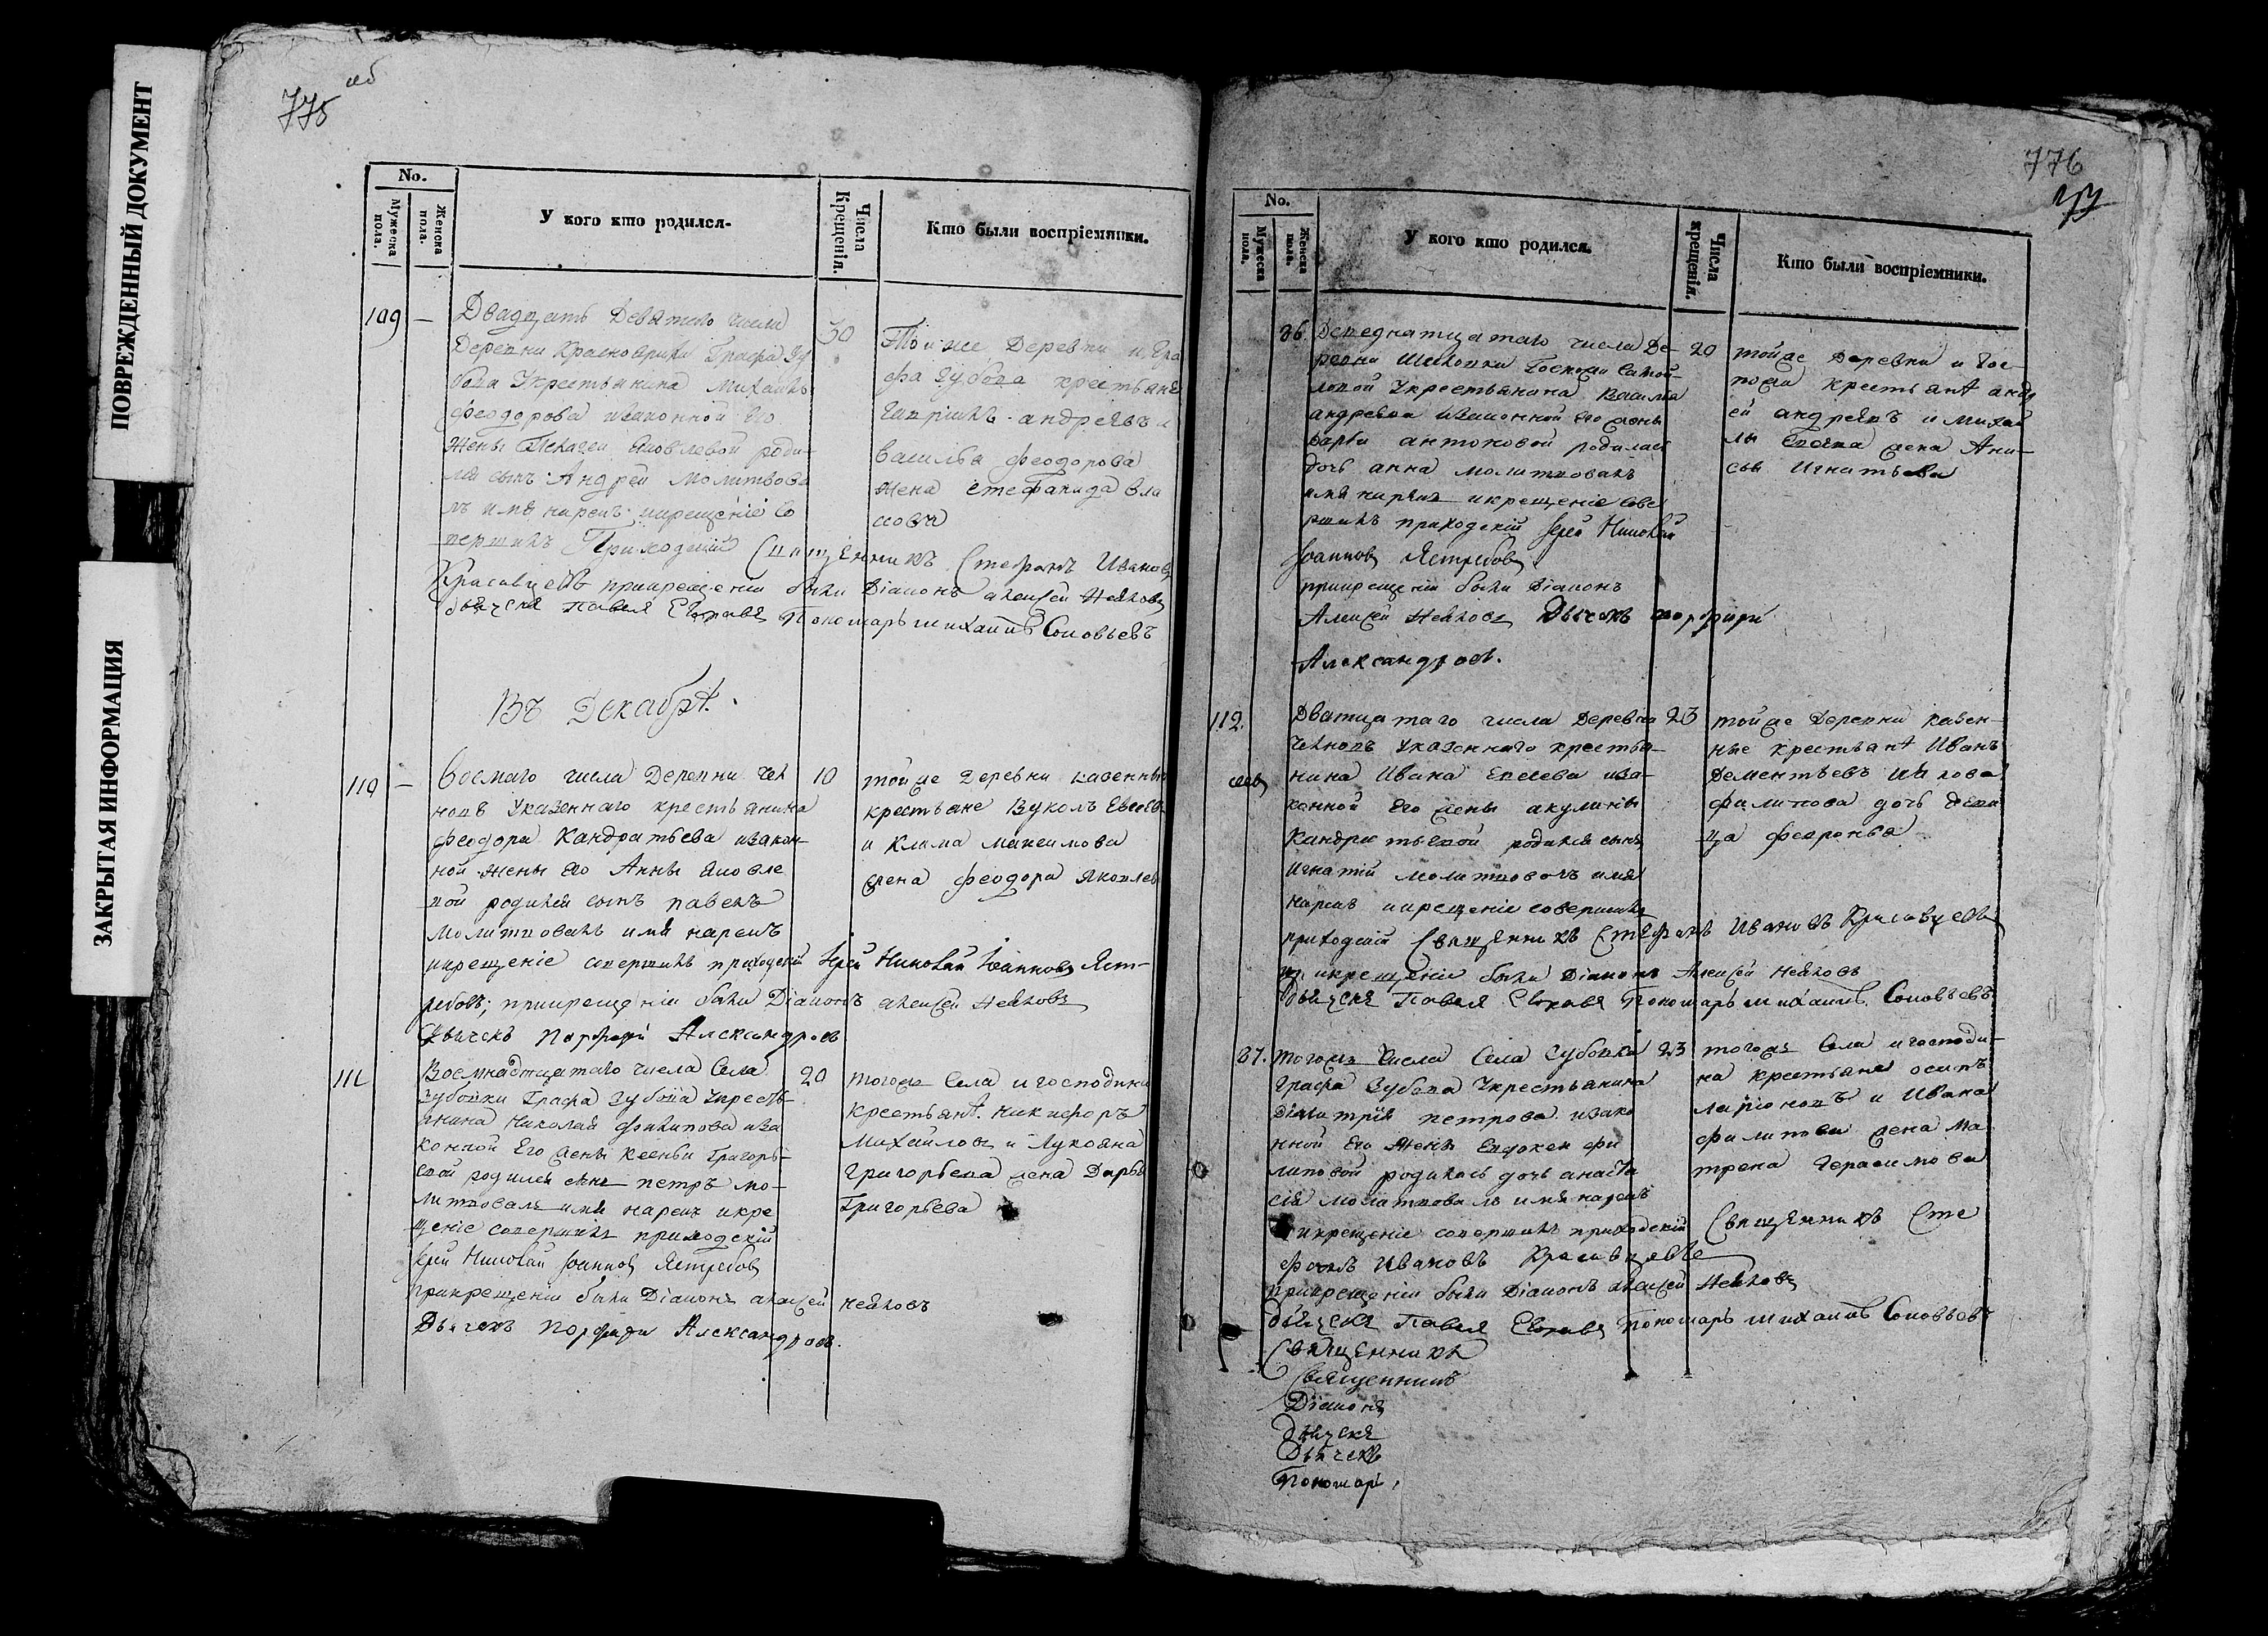 ПОВРЕЖДЕННЫЙ ДОКУМЕНТ
ЗАКРЫТАЯ ИНФОРМАЦИЯ
775 об
No.
Мужеска пола.
Женска пола.
У кого кто родился.
Числа Крещенія.
Кто были воспріемники.
109 —
Двадцать Девятаго числа
Деревни Красноврихи Графа Зу
бова Укрестьянина Михаила
Феодорова изаконной его
Жены Пелагеи Яковлевой роди-
лся сынъ Андрей Молитвова
лъ имя нарекъ икрещеніе со
вершилъ Приходскій Священникъ Стефанъ Ивановъ
Красавцевъ прикрещеніи были Діаконъ алексей Нечаевъ
30
Той же Деревни и Гра
фа Зубова крестьяне
Гаврилъ андреевъ и
василья феодорова
жена стефанида вла
сова
Пономарь михаилъ Соловьевъ
ВЪ Декабрѣ.
110 —
Восмаго числа Деревни Чел
новъ Указеннаго крестьянина
Феодора Кандратьева изакон-
ной жены его Анны Яковле
вой родился сынъ павелъ
молитвовалъ имя нарекъ
икрещеніе совершилъ приходскій Іерей Николай Іоанновъ Яст-
ребовъ, прикрещеніи были Діаконъ алексей
Дьячекъ Порфирій Александровъ
10
тойже деревни казенные
крестьяне Вуколъ Евсеевъ
и Клима максимова
жена феодора Яковлев
111
Восмнадцатаго числа Села
Зубовки Графа Зубова Укресть-
янина Николая Филипова иза
конной Его жены Ксеньи Григорь-
евой родился сынъ петръ мо-
литвовалъ имя нарекъ икре
щеніе совершилъ приходскій
Іерей Николай Іоанновъ Ястребовъ
прикрещеніи были Діаконъ алексей
Дьячекъ порфири Александровъ.
20
тогоже Села и господина
крестьянѣ Никифоръ
Михайловъ и Лукояна
Григорьева жена Дарья
Григорьева
776
No.
Мужеска пола.
Женска пола.
У кого кто родился.
Числа крещенія.
Кто были воспріемники.
86.
числа Де-
ревни Госпожи Самой-
ловой Укрестьянина Василья
андреева изаконной его жены
варвы антоновой родилась
дочь анна молитвовалъ
имя нарекъ икрещеніе сове
ршилъ приходскій Іерей Николай
Іоанновъ Ястребовъ
прикрещеніи были Діаконъ
Алексей Дьячекъ порфири
Александровъ.
20
тойже Деревни и Гос-
пожи крестьянѣ андр
ей андреевъ и михай
лы жена Ани-
сья Игнатьева
112.
Дватцатаго числа Деревни
Челновъ Указеннаго крестья-
нина Ивана Евсеева иза-
конной его жены акулины
Кандратьевой родился сынъ
Игнатій молитвовалъ имя
нарекъ икрещеніе совершилъ
приходскій Священникъ Стефанъ Ивановъ Красавцевъ
при крещеніи были Діаконъ Алексей
Пономарь михаилъ Соловьевъ
23
тойже Деревни казен-
ные крестьянѣ Иванъ
Дементьевъ
филипова дочь деви
ца февронья
87.
тогожъ Числа Села Зубовки
Графа Зубова Укрестьянина
Дімитрія петрова изако
нной его Жены Евдокеи фи
липовой родилась дочь анаста
сія молитвовалъ имя нарекъ
икрещеніе совершилъ приходскій Священникъ Сте
фанъ Ивановъ Красавцевъ
прикрещеніи были Діаконъ алексей
Пономарь михаилъ Соловьевъ
23
тогожъ Села и господи-
на крестьяне осипъ
ларіоновъ и Ивана
филипова жена Ма
трена Герасимова
Священникъ
Священникъ
Діаконъ
Дьячекъ
Пономарь